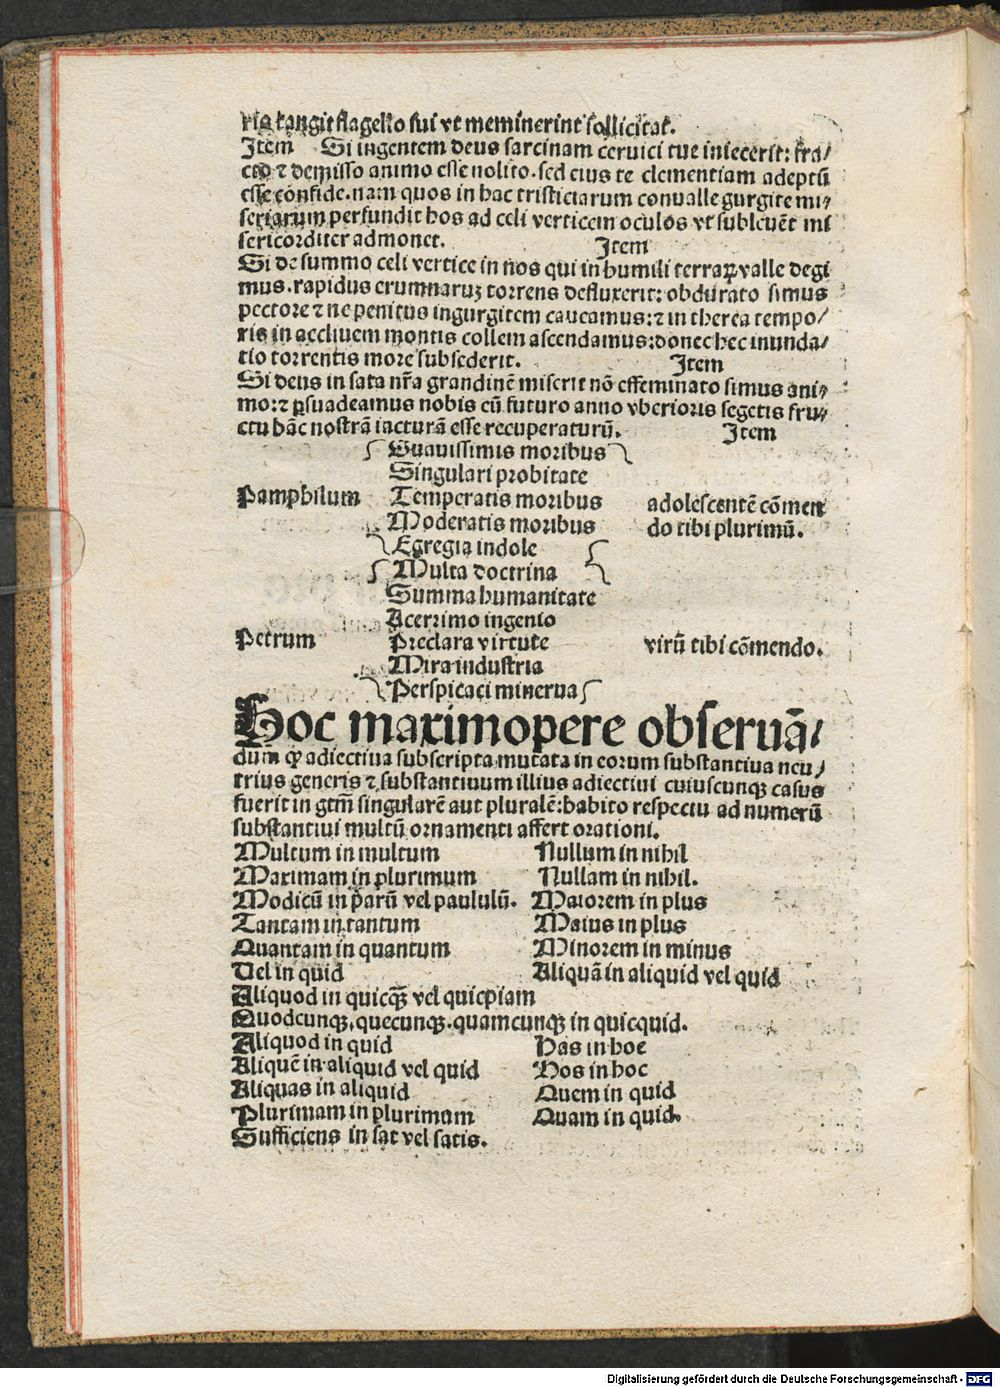 ria tangit flagello sui vt meminerint sollicitat.
Item Si ingentem deus sarcinam ceruici tue iniecerit: fra/
cto ⁊ demisso animo esse nolito. sed eius te clementiam adeptū
esse confide. nam quos in hac tristiciarum conualle gurgite mi⸗
seriarum persundit hos ad celi verticem oculos vt subleuēt mi
sericorditer admonet. Item
Si de summo celi vertice in nos qui in humili terraꝝ valle degi
mus. rapidus erumnaruꝫ torrens defluxerit: obdurato simus
pectore ⁊ ne penitus ingurgitem caueamus: ⁊ in therea tempo/
ris in accliuem montis collem ascendamus: donec hec inunda/
tio torrentis more subsederit. Item
Si deus in sata nr̄a grandinē miserit nō effeminato simus ani⸗
mo: ⁊ ꝑsuadeamus nobis cū futuro anno vberioris segetis fru⸗
ctu hāc nostrā iacturā esse recuperaturū. Item
Suauissimis moribus
Singulari probitate
Pamphilum Temperatis moribus adolescentē cōmen
Moderatis moribus do tibi plurimū.
Egregia indole
Multa doctrina
Summa humanitate
Acerrimo ingenio
Petrum Preclara virtute virū tibi cōmendo.
Mira industria
Perspicaci minerua
Hoc maximopere obseruā/
dum ꝙ adiectiua subscripta mutata in eorum substantiua neu/
trius generis ⁊ substantiuum illius adiectiui cuiuscunqꝫ casus
fuerit in gtm̄ singularē aut pluralē: habito respectu ad numerū
substantiui multū ornamenti affert orationi.
Multum in multum Nullum in nihil
Maximam in plurimum Nullam in nihil.
Modicū in parū vel paululū. Maiorem in plus
Tantam in tantum Maius in plus
Quantam in quantum Minorem in minus
Vel in quid Aliquā in aliquid vel quid
Aliquod in quicqꝫ̄ vel quicpiam
Quodcunqꝫ, quecunqꝫ. quamcunqꝫ in quicquid.
Aliquod in quid Has in hoc
Aliquē in aliquid vel quid Hos in hoc
Aliquas in aliquid Quem in quid
Plurimam in plurimum Quam in quid.
Sufficiens in sat vel satis.
Digitalisierung gefördert durch die Deutsche Forschungsgemeinschaft - DFG